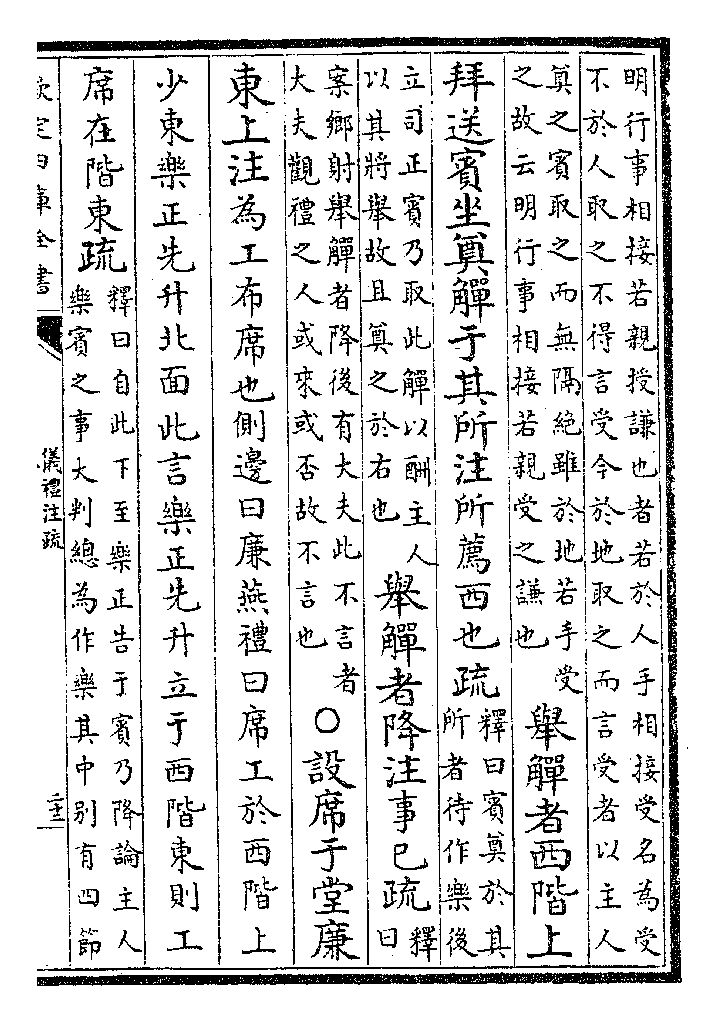 明行事相接若親授謙也者若於人手相接受名為受
不於人取之不得言受今於地取之而言受者以主人
奠之賓取之而無隔絶雖於地若手受
之故云明行事相接若親受之謙也
舉觶者西階上
拜送賓坐奠觶于其所注所薦西也疏
釋曰賓奠於其
所者待作樂後
立司正賓乃取此觶以酬主人
以其將舉故且奠之於右也
舉觶者降注事已疏
釋
曰
案鄉射舉觶者降後有大夫此不言者
大夫觀禮之人或來或否故不言也
○設席于堂廉
東上注為工布席也側邊曰廉燕禮曰席工於西階上
少東樂正先升北面此言樂正先升立于西階東則工
席在階東疏
釋曰自此下至樂正告于賓乃降論主人
樂賓之事大判總為作樂其中別有四節
欽定四庫全書
儀禮注疏